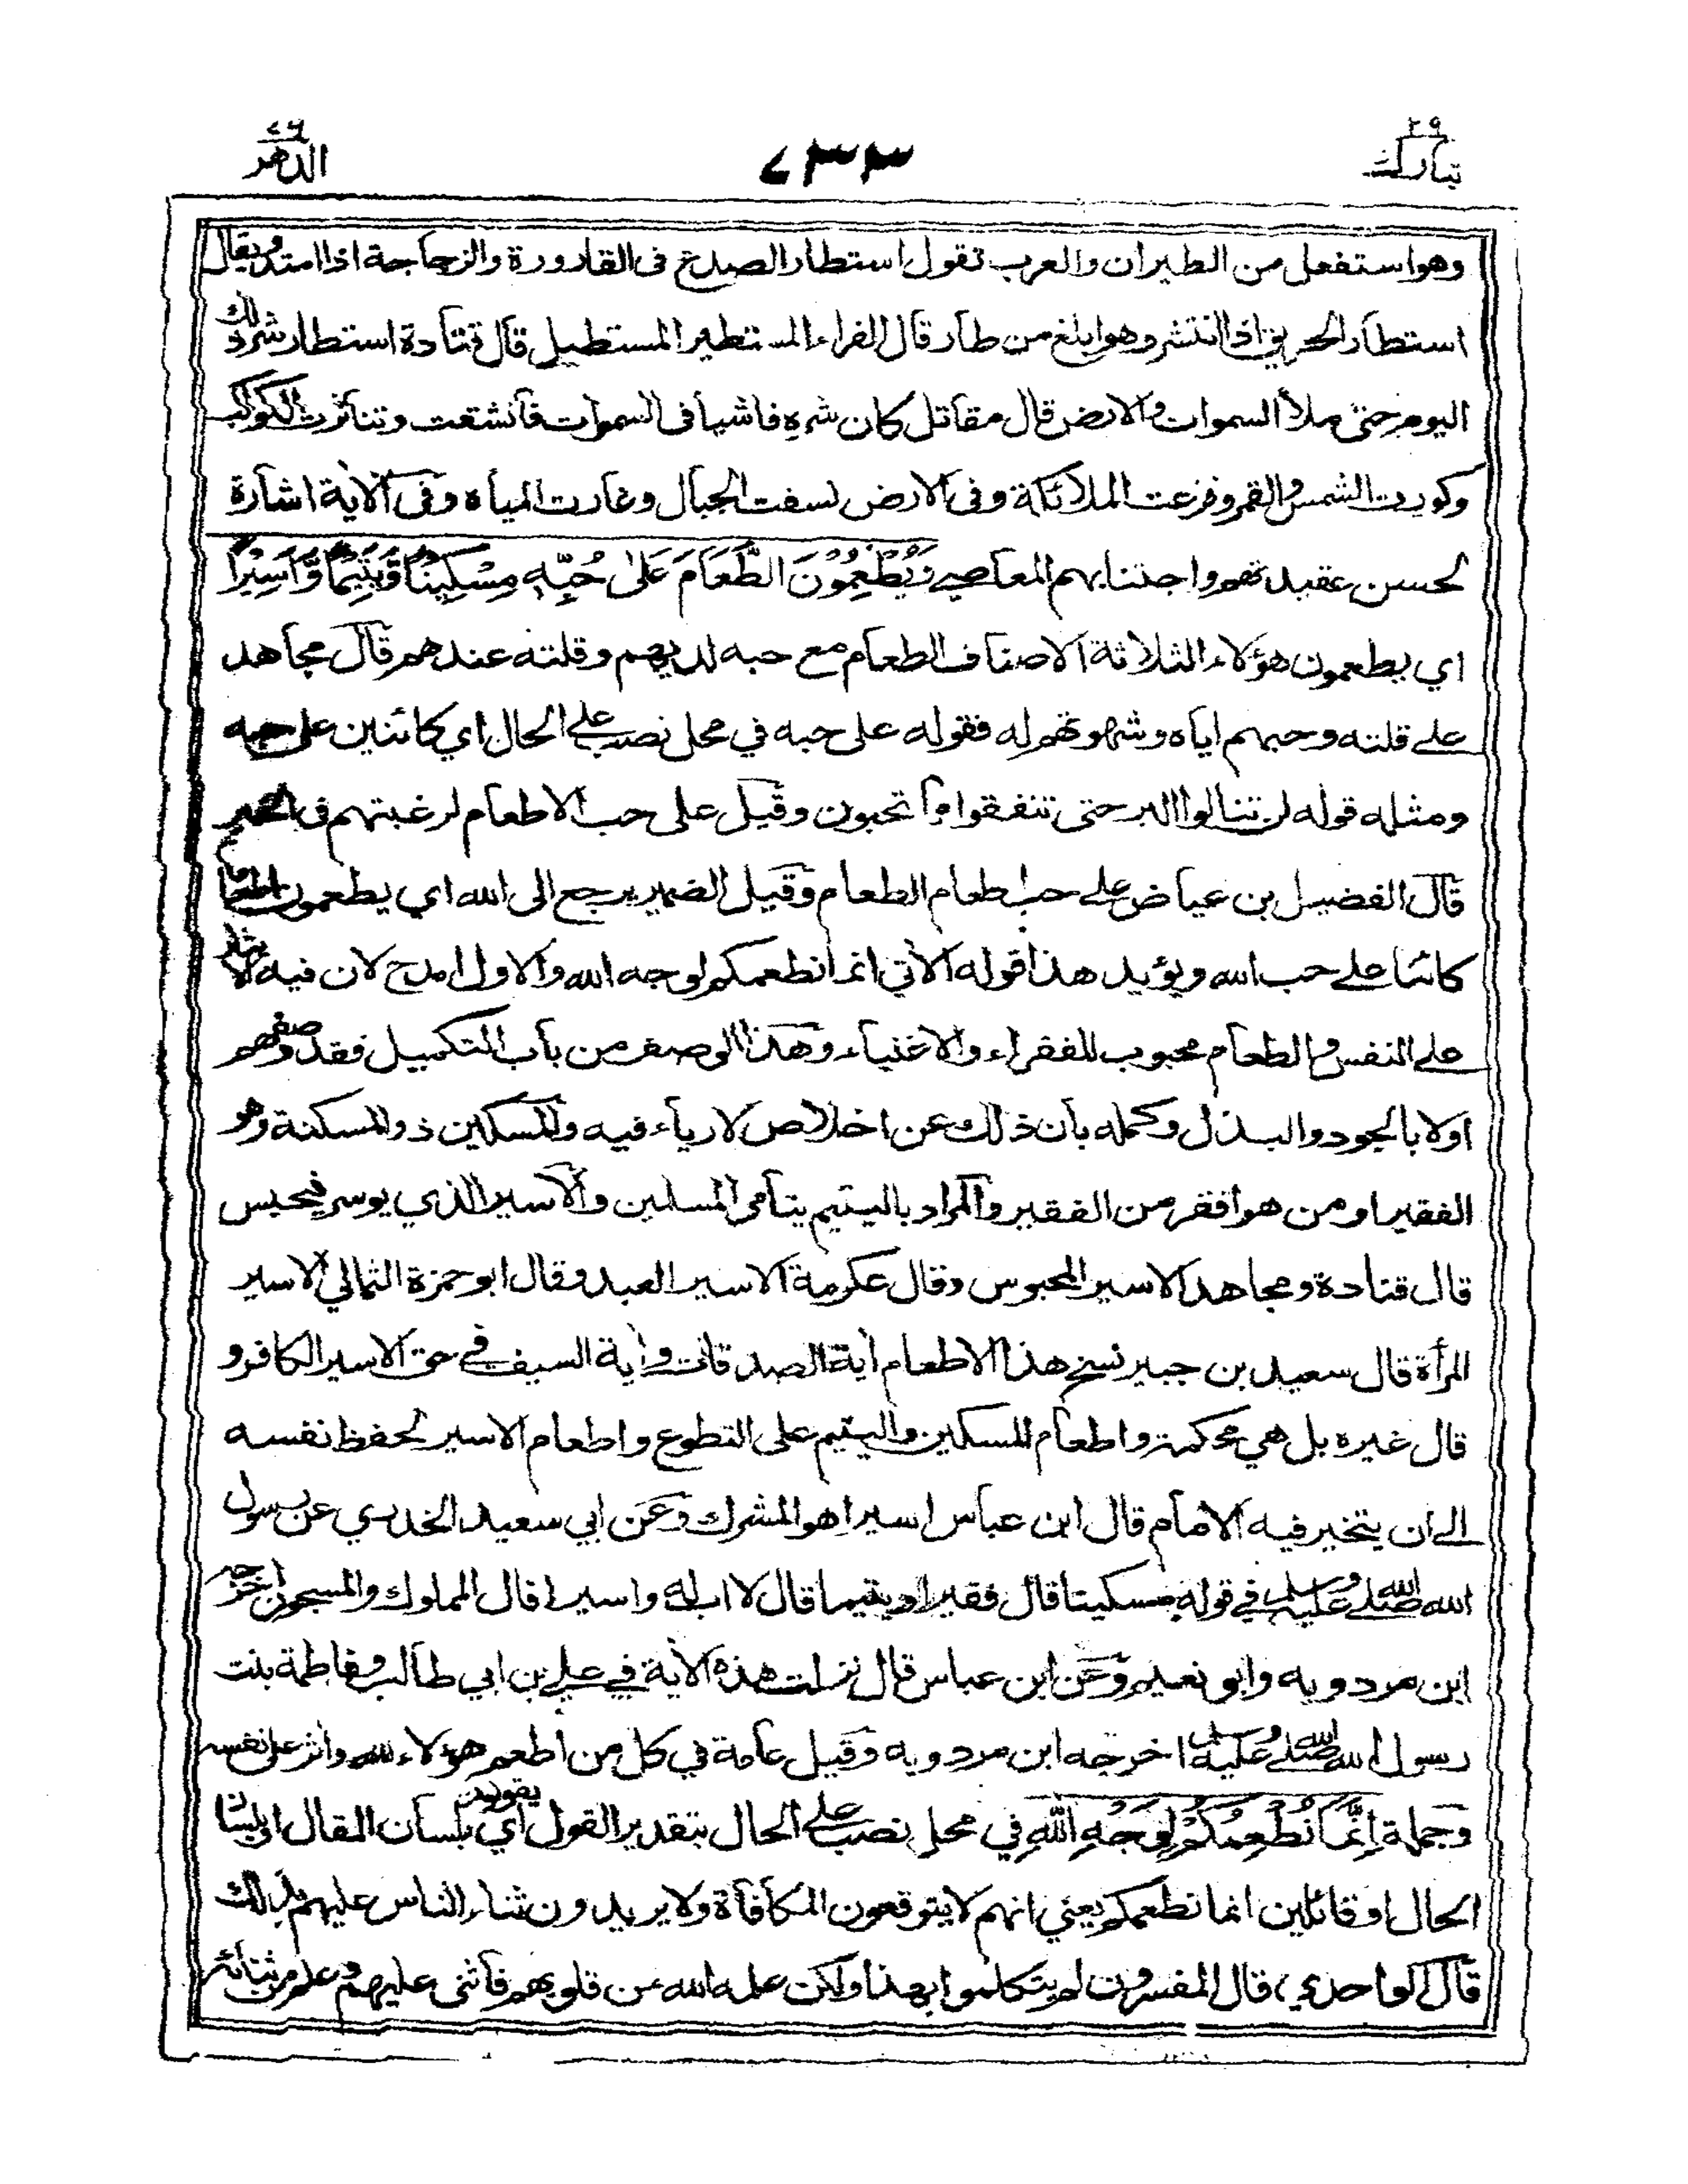 تبارك ٢٩
٧٣٣
الدهر ٧٦
وهو استفعل من الطيران والعرب تقول استطار الصدع فى القارورة والزجاجة اذا امتد ويقال
استطار الحريق اذا انتشر وهو ابلغ من طار قال الفراء المستطير المستطيل قال قتادة استطار شر ذلك
اليوم حتى ملأ السموات والارض قال مقاتل كان شره فاشيا فى السموات فانشقت وتناثرت الكواكب
وكورت الشمس والقمر وفزعت الملائكة وفى الارض نسفت الجبال وغارت المياه وفى الآية اشارة
لحسن عقيدتهم واجتنابهم المعاصي وَيُطْعِمُوْنَ الطَّعَامَ عَلىٰ حُبِّهٖ مِسْكِيْنًا وَّيَتِيْمًا وَّاَسِيْرًا
اي يطعمون هؤلاء الثلاثة الاصناف الطعام مع حبه لديهم وقلته عندهم قال مجاهد
على قلته وحبهم اياه وشهوتهم له فقوله على حبه في محل نصب على الحال اي كائنين على حبه
ومثله قوله لن تنالوا البر حتى تنفقوا مما تحبون وقيل على حب الاطعام لرغبتهم فى الخير
قال الفضيل بن عياض على حب اطعام الطعام وقيل الضمير يرجع الى الله اي يطعمون اطعاما
كائنا على حب الله ويؤيد هذا قوله الآتي انما نطعمكم لوجه الله والاول امدح لان فيه الايثار
على النفس والطعام محبوب للفقراء والاغنياء وهذا الوصف من باب التكميل فقد وصفهم
اولا بالجود والبذل وكمله بان ذلك عن اخلاص لا رياء فيه والمسكين ذو المسكنة وهو
الفقير او من هو افقر من الفقير والمراد باليتيم يتامى المسلمين والاسير الذي يوسر فيحبس
قال قتادة ومجاهد الاسير المحبوس وقال عكرمة الاسير العبد وقال ابو حمزة الثمالي الاسير
المرأة قال سعيد بن جبير نسخ هذا الاطعام اية الصدقات واية السيف في حق الاسير الكافر و
قال غيره بل هي محكمة واطعام المسكين واليتيم على التطوع واطعام الاسير لحفظ نفسه
الى ان يتخير فيه الامام قال ابن عباس اسيرا هو المشرك وعن ابي سعيد الخدري عن رسول
الله صلى الله عليه وسلم في قوله مسكينا قال فقيرا ويتيما قال لا اب له واسيرا قال المملوك والمسجون اخرجه
ابن مردويه وابو نعيم وعن ابن عباس قال نزلت هذه الآية في علي بن ابي طالب وفاطمة بنت
رسول الله صلى الله عليه وسلم اخرجه ابن مردويه وقيل عامة في كل من اطعم هؤلاء لله واثر على نفسه
وجملة اِنَّمَا نُطْعِمُكُمْ لِوَجْهِ اللّٰهِ في محل نصب على الحال بتقدير القول اي يقولون بلسان المقال او بلسان
الحال او قائلين انما نطعمكم يعني انهم لا يتوقعون المكافأة ولا يريدون ثناء الناس عليهم بذلك
قال الواحدي قال المفسرون لم يتكلموا بهذا ولكن علمه الله من قلوبهم فاثنى عليهم وعلم من ثنائه